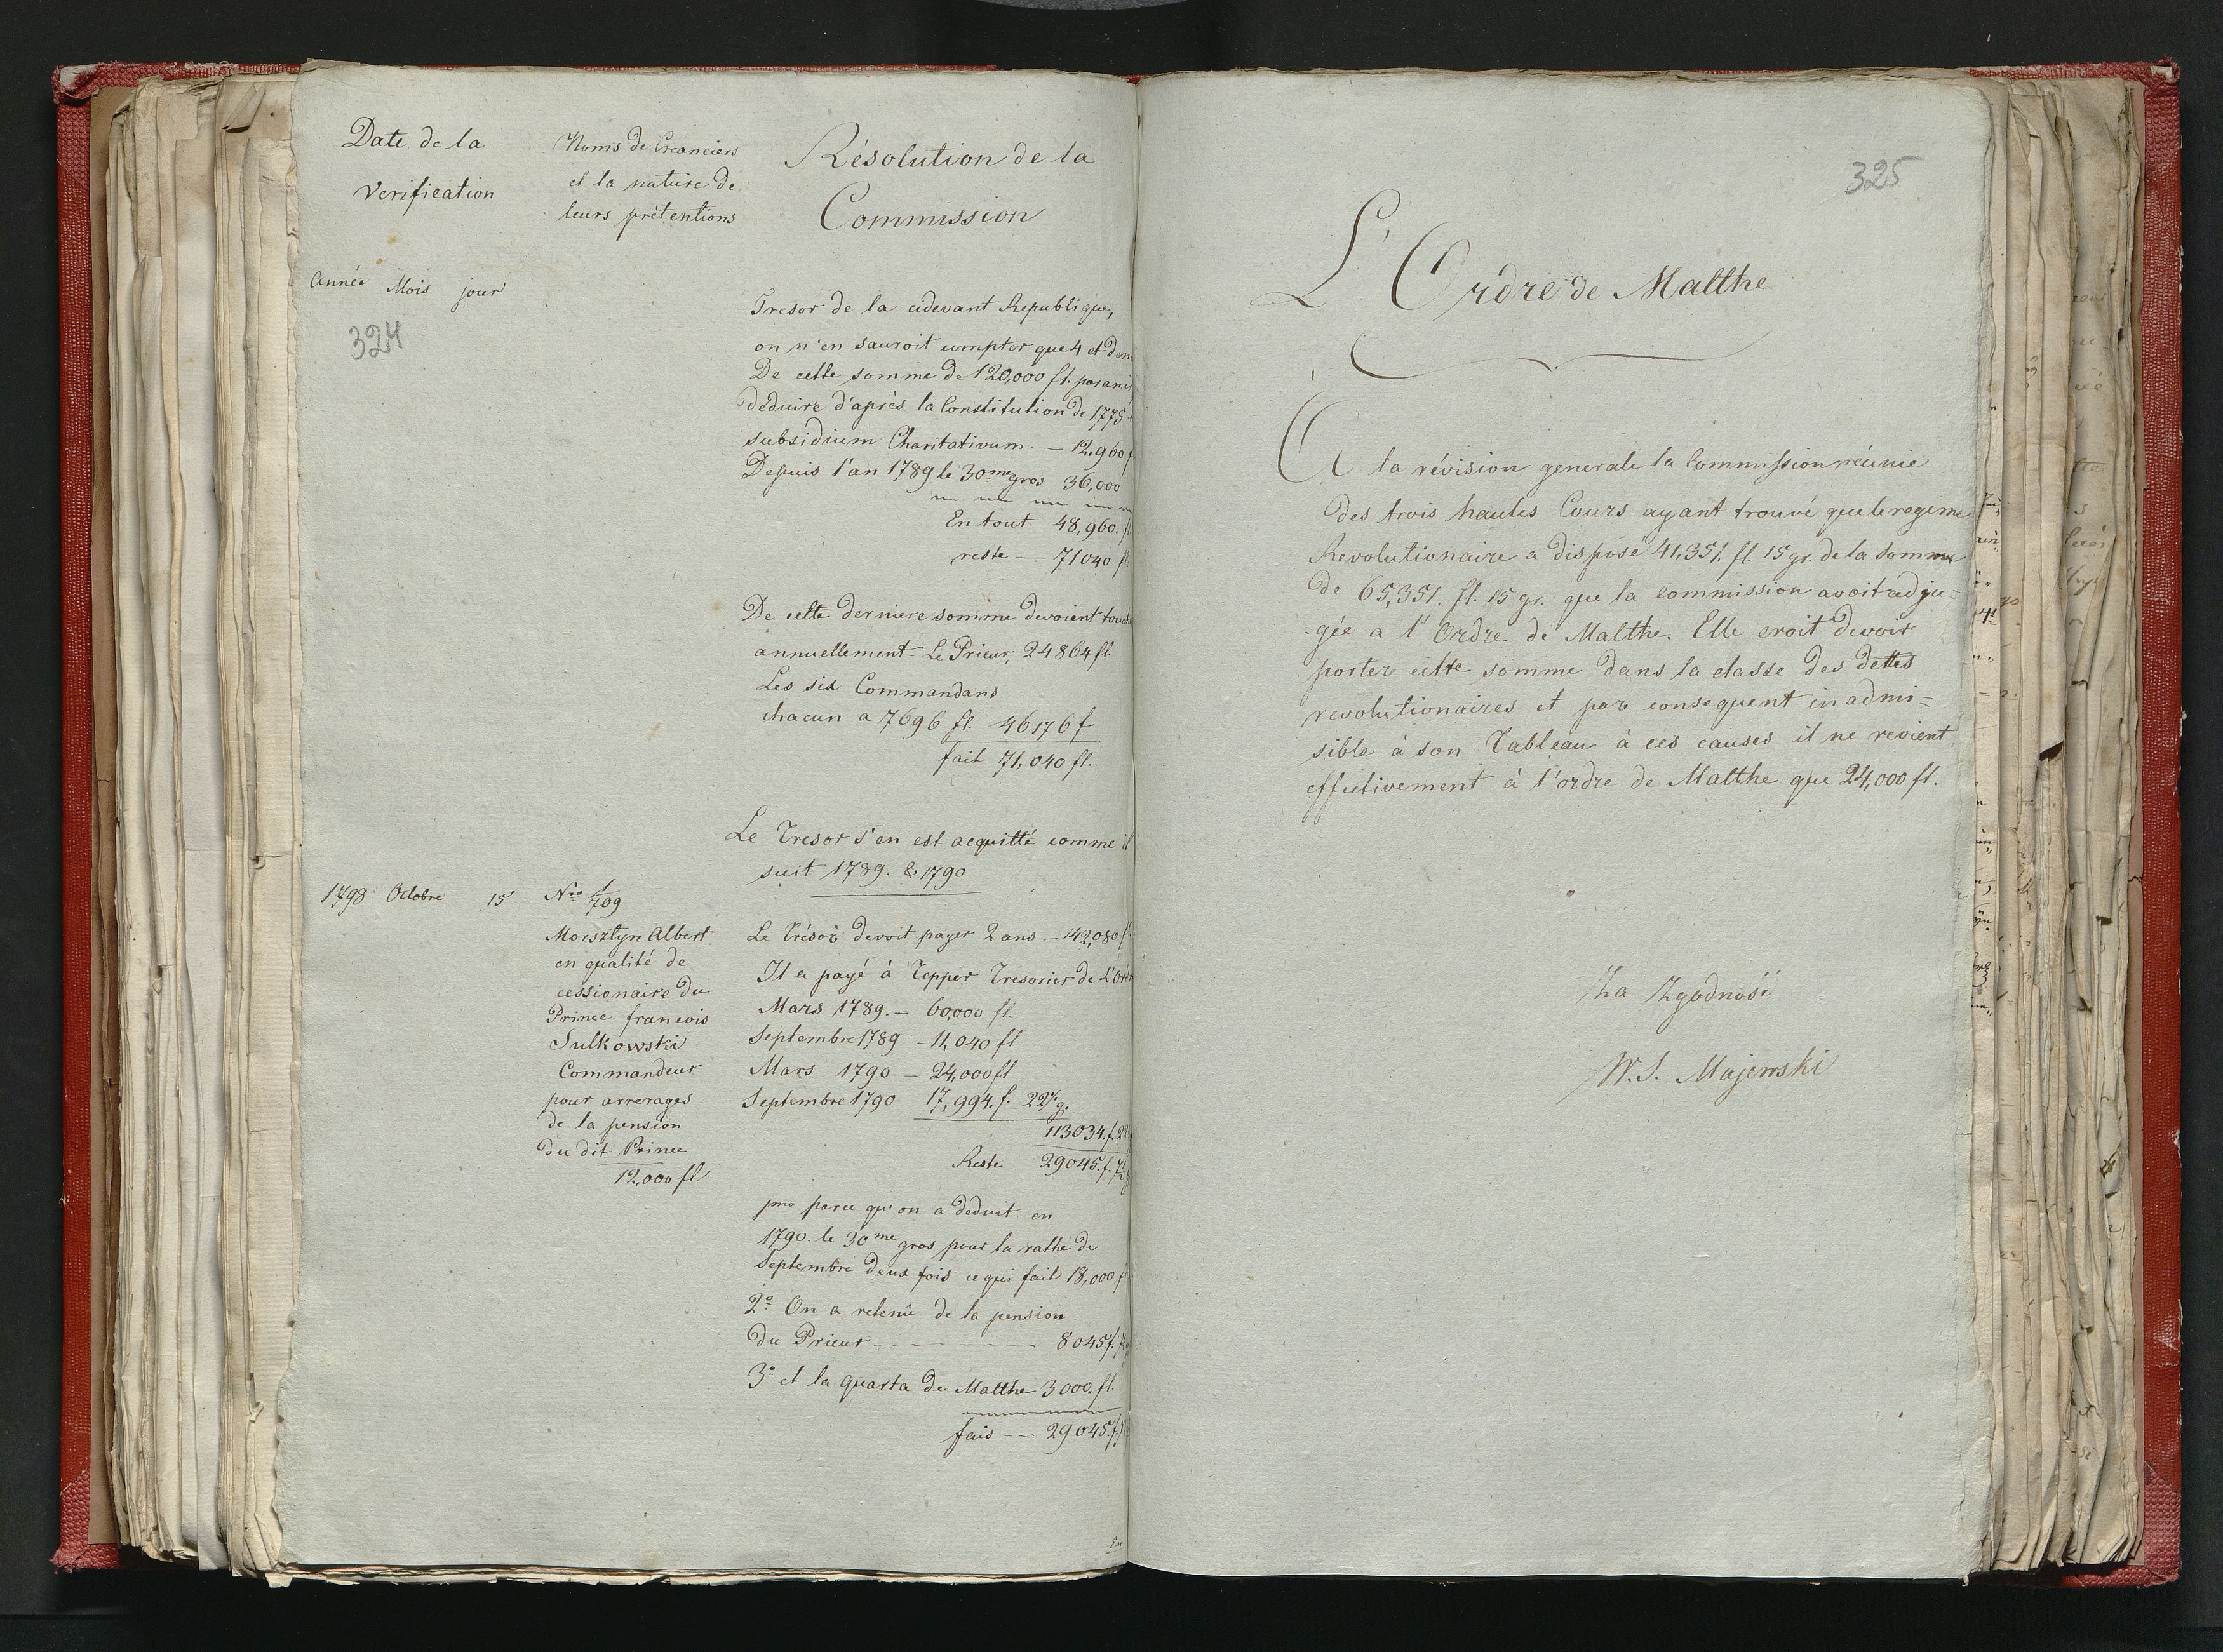 Date de la
Verification
Noms de Creanciers
et la nature de
leurs prétentions
Résolution de la
Commission
année Mois jour
324
Tresor de la cidevant Republique,
on n'en sauroit compter que 4 et dem
De cette somme de 120,000 fl. par an il
déduire d'après la Constitution de 1775
subsidium Charitativum — 12,960 f
Depuis l'an 1789 le 30me gros 36,000
En tout 48,960. f
reste — 71040 f
De cette derniere somme devoient touch
annuellement - Le Prieur, 24864 fl.
Les six Commandans
chacun a 7696 fl. 46176 f
fait 71,040 fl.
Le Tresor s'en est acquitté comme il
suit 1789. & 1790
1798 Octobre 15 Nro 1/709
Morsztyn Albert
en qualité de
cessionaire du
Prince francois
Sulkowski
Commandeur
pour arrerages
de la pension
du dit Prince
12,000 fl
Le Trésor devoit payer 2 ans — 142,080 f
Il a payé à Tepper Tresorier de L'Ordr
Mars 1789. — 60,000 fl.
Septembre 1789 — 11,040 fl
Mars 1790 — 24,000 fl
Septembre 1790 17,994. f. 22½ g.
113034. f. 22
Reste 29045. f. 7½
pmo parce qu'on a deduit en
1790. le 30me gros pour la rathe de
Septembre deux fois ce qui fait 18,000 f
2o. On a retenû de la pension
du Prieur - - - - - - - 8045 f. 7
3o et la quarta de Malthe 3000. fl.
fais - - - 29045. f 7
En
325
L'Ordre de Malthe
A la révision generale la Commission réunie
des trois hautes Cours ayant trouvé que le regime
Revolutionaire a disposé 41,351. fl. 15 gr. de la somme
de 65,351. fl. 15 gr. que la commission avoit adju=
=gée a l'Ordre de Malthe. Elle croit devoir
porter cette somme dans la classe des dettes
revolutionaires et par consequent inadmi=
sible à son Tableau à ces causes il ne revient
effectivement à l'ordre de Malthe que 24,000 fl.
Za Zgodność
W. S. Majewski